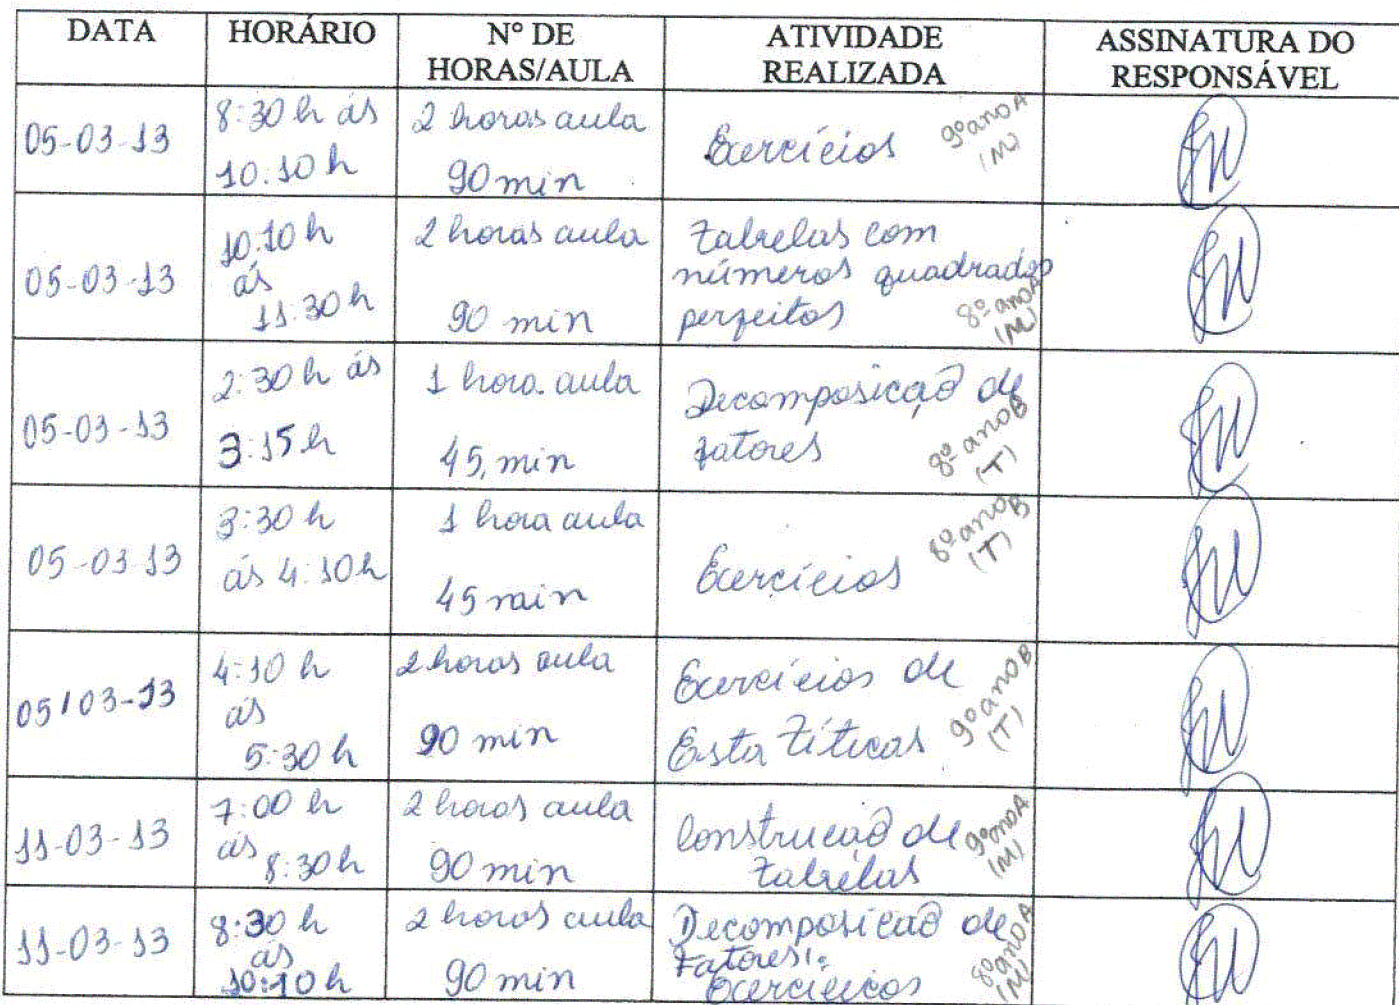 DATA HORÁRIO Nº DE HORAS/AULA ATIVIDADE REALIZADA ASSINATURA DO RESPONSÁVEL
05-03-13
8:30 h ás
10:10 h
2 horas aula
90 min
Exercícios
9º ano A
(M)
05-03-13
10:10 h
ás
11:30 h
2 horas aula
90 min
Tabelas com
números quadrados
perfeitos
8º ano A
(M)
05-03-13
2:30 h ás
3:15 h
1 hora aula
45 min
Decomposição de
fatores
8º ano B
(T)
05-03-13
3:30 h
ás 4:10 h
1 hora aula
45 min
Exercícios
8º ano B
(T)
05/03-13
4:10 h
ás
5:30 h
2 horas aula
90 min
Exercícios de
Estatíticas
9º ano B
(T)
11-03-13
7:00 h
ás
8:30 h
2 horas aula
90 min
Construção de
tabelas
9º ano A
(M)
11-03-13
8:30 h
ás
10:10 h
2 horas aula
90 min
Decomposicão de
Fatores
Exercícicos
8º ano A
(M)